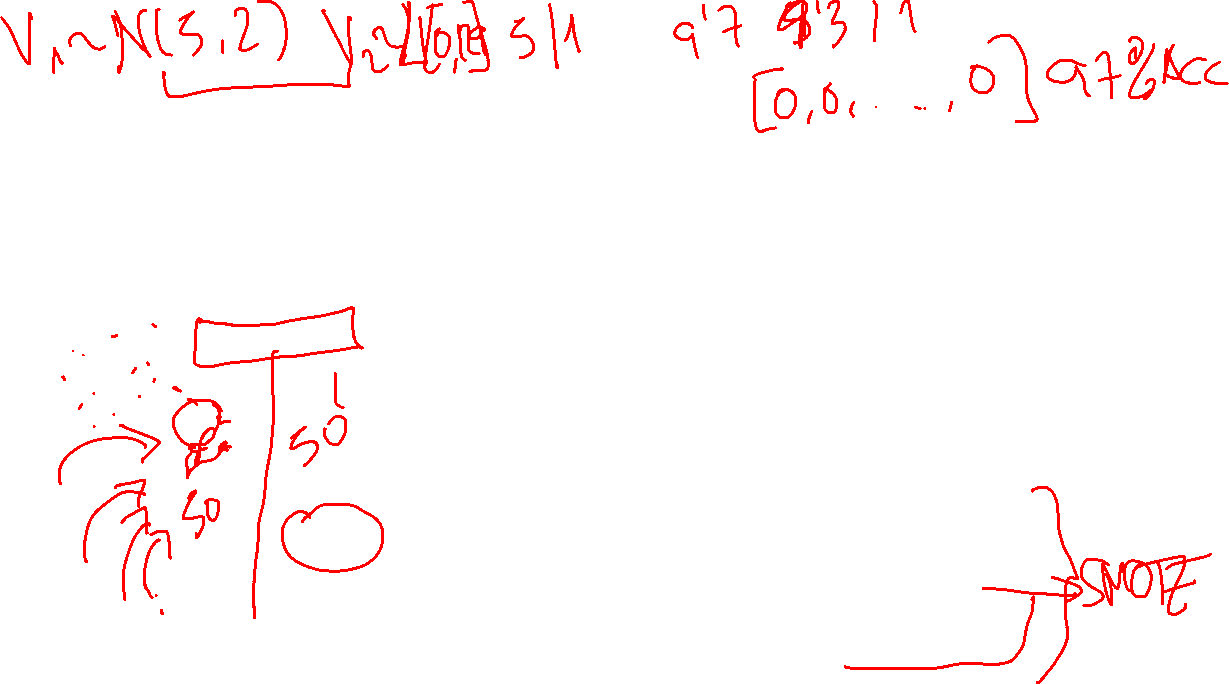 V₁~N(5,2) V₂~ 5/1 9'7 3/1
[0,0,...,0] 97%Acc
50
50
SMOTE